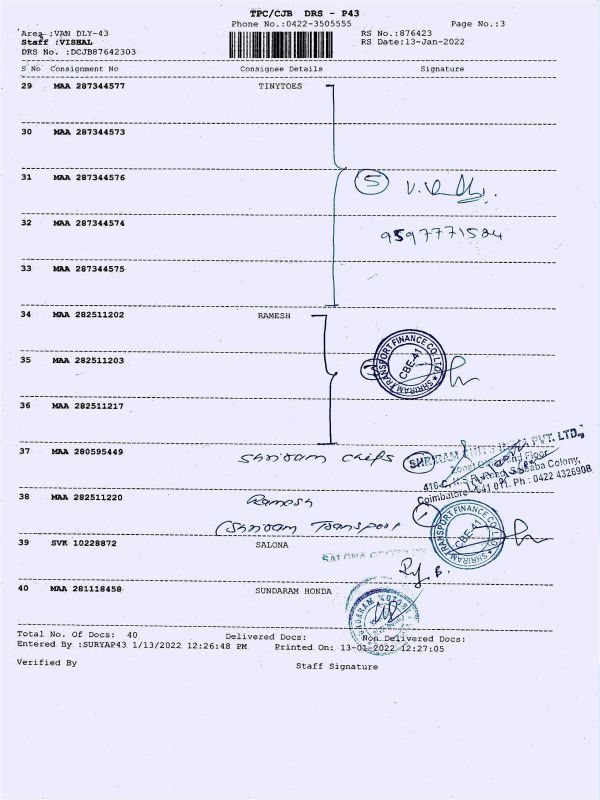 TPC/CJB DRS - P43
Phone No.:0422-3505555
Page No.:3
Area :VAN DLY-43
RS No.:876423
Staff :VISHAL
RS Date:13-Jan-2022
DRS No. :DCJB87642303
S No Consignment No Consignee Details Signature
29 MAA 287344577 TINYTOES
30 MAA 287344573
31 MAA 287344576
5
32 MAA 287344574
9597771504
33 MAA 287344575
34 MAA 282511202 RAMESH
SHRIRAM TRANSPORT FINANCE CO LTD
CBE-41
35 MAA 282511203
36 MAA 282511217
37 MAA 280595449 Shriram chips
SHRIRAM CHITS INDIA PVT. LTD.,
Coimbatore - 641 011. Ph : 0422 4326908
38 MAA 282511220 Ramesh
(Shriram Transport
1
SHRIRAM TRANSPORT FINANCE CO LTD
CBE-41
39 SVK 10228872 SALONA
SALONA
40 MAA 281118458 SUNDARAM HONDA
Total No. Of Docs: 40 Delivered Docs: Non Delivered Docs:
Entered By :SURYAP43 1/13/2022 12:26:48 PM Printed On: 13-01-2022 12:27:05
Verified By Staff Signature